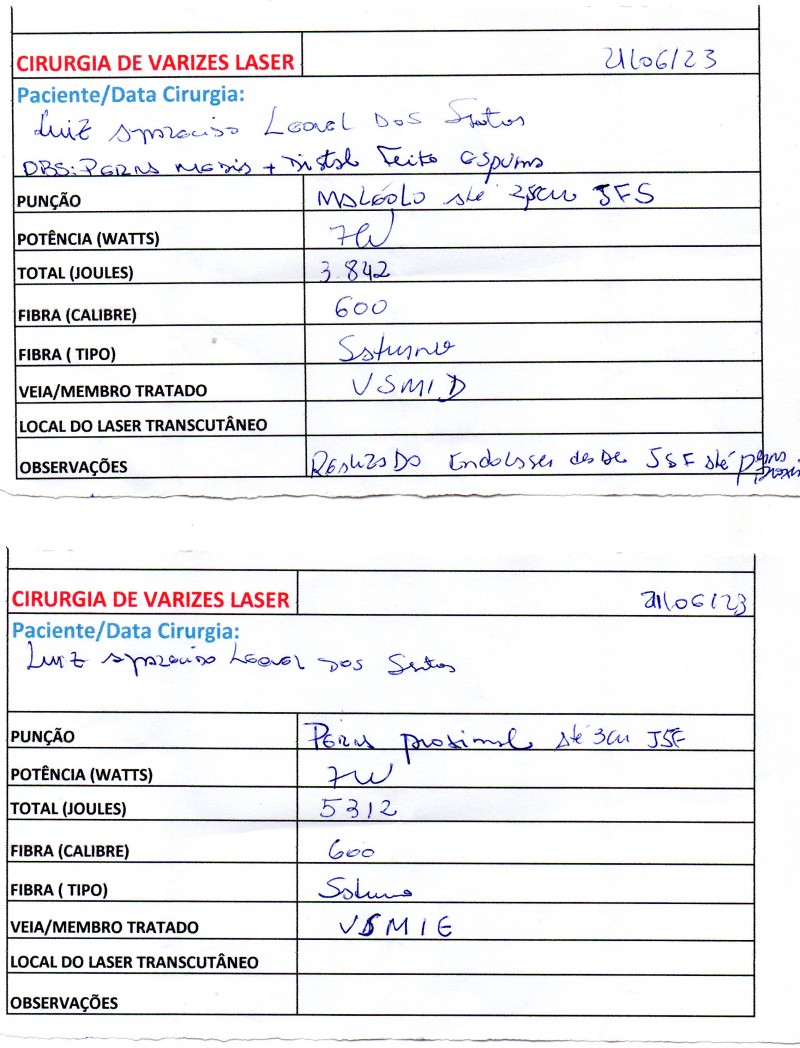 CIRURGIA DE VARIZES LASER 21/06/23
Paciente/Data Cirurgia:
Luiz Aparecido Leonel Dos Santos
OBS: PERNA MEDIA + Distal Feito ESPUMA
PUNÇÃO MALÉOLO até 2,5cm JFS
POTÊNCIA (WATTS) 7W
TOTAL (JOULES) 3.842
FIBRA (CALIBRE) 600
FIBRA ( TIPO) Saturno
VEIA/MEMBRO TRATADO VSMID
LOCAL DO LASER TRANSCUTÂNEO
OBSERVAÇÕES Realizado Endolaser desde JSF até perna
CIRURGIA DE VARIZES LASER 21/06/23
Paciente/Data Cirurgia:
Luiz Aparecido Leonel Dos Santos
PUNÇÃO PERNA proximal até 3cm JSF
POTÊNCIA (WATTS) 7W
TOTAL (JOULES) 5312
FIBRA (CALIBRE) 600
FIBRA ( TIPO) Saturno
VEIA/MEMBRO TRATADO VSMIE
LOCAL DO LASER TRANSCUTÂNEO
OBSERVAÇÕES